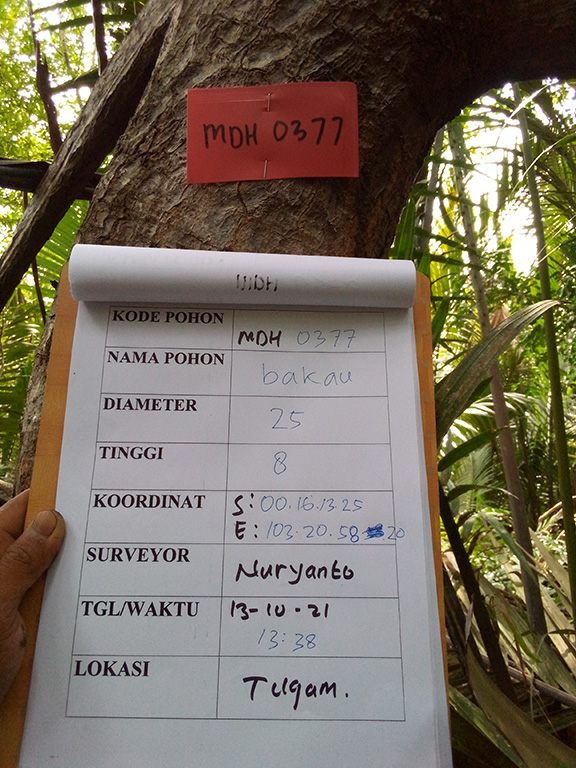 MDH 0377
MDH
KODE POHON MDH 0377
NAMA POHON bakau
DIAMETER 25
TINGGI 8
KOORDINAT S: 00.16.13.25
E: 103.20.58 20
SURVEYOR Nuryanto
TGL/WAKTU 13-10-21
13:38
LOKASI Tugam.